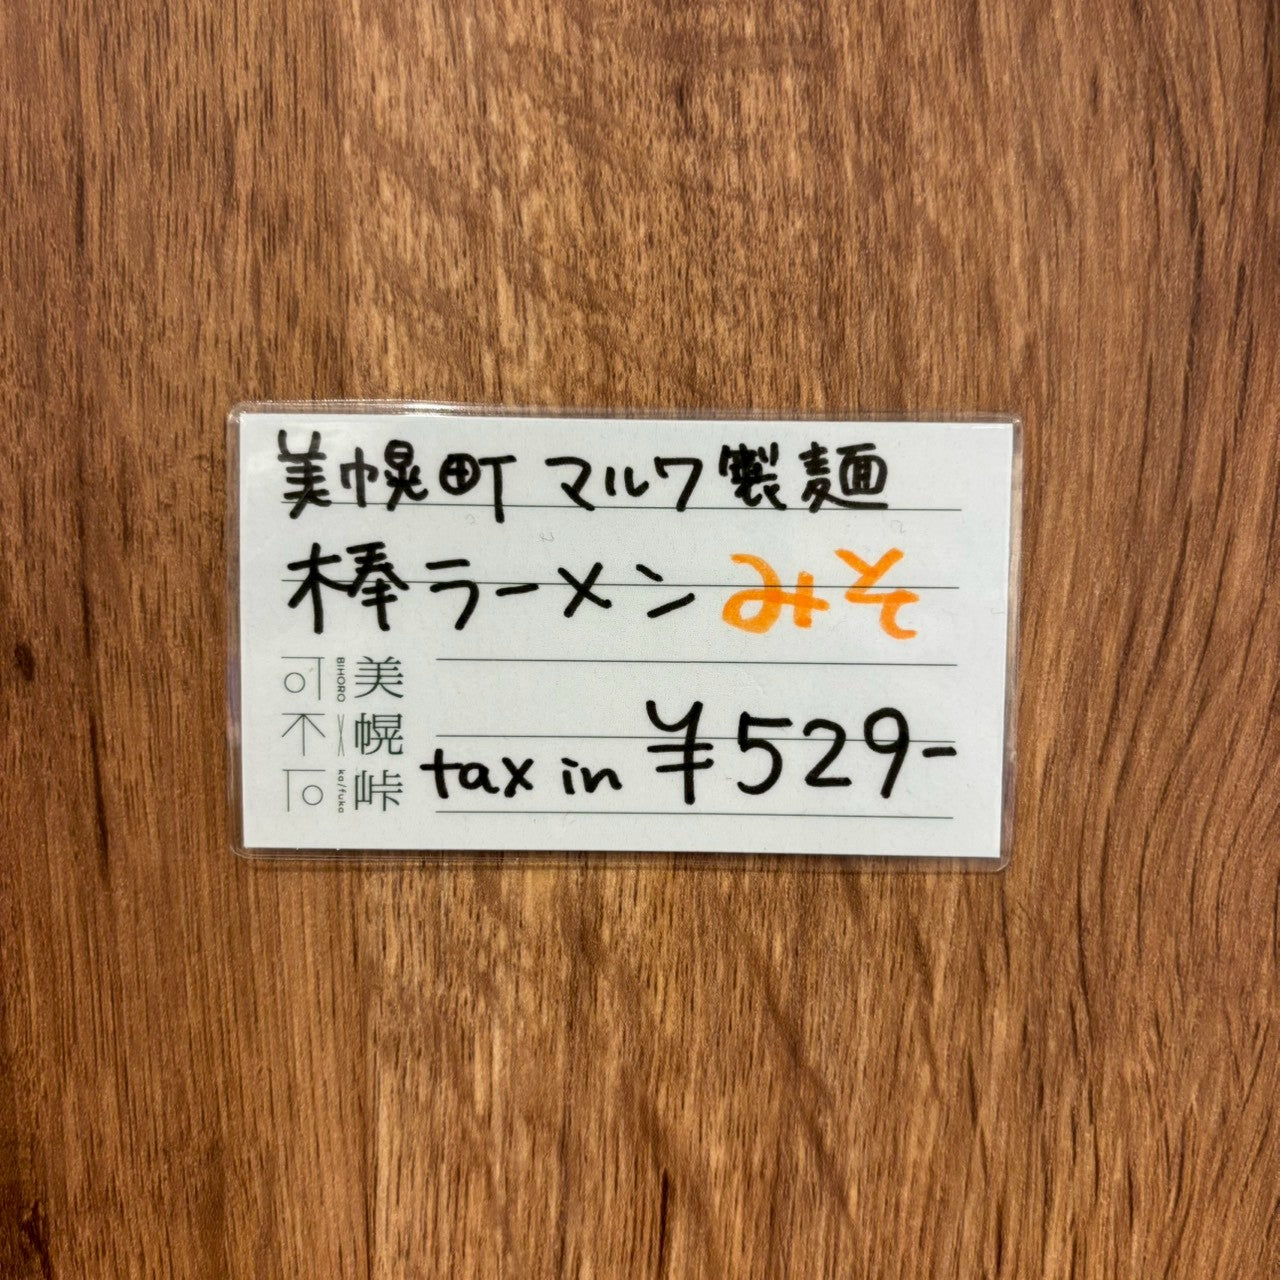 美幌町 マルワ製麺
棒ラーメン みそ
美幌峠
BIHORO X ka/fuka
可不可
tax in ¥529-